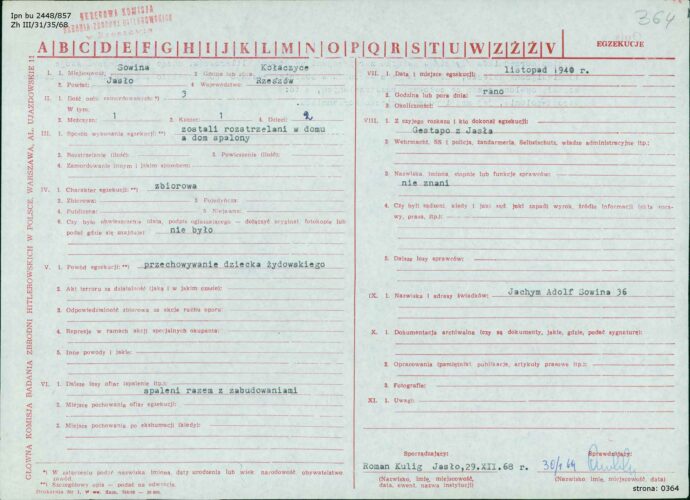 Ipn bu 2448/857
Zh III/31/35/68
364
A B C D E F G H I J K L M N O P Q R S T U W Z Ź Ż V
EGZEKUCJE
GŁÓWNA KOMISJA BADANIA ZBRODNI HITLEROWSKICH W POLSCE, WARSZAWA, AL. UJAZDOWSKIE 11
I. 1. Miejscowość: Sowina 2. Gmina Kołaczyce
3. Powiat: Jasło 4. Województwo: Rzeszów
II. 1. Ilość osób zamordowanych:*) 3
W tym:
2. Mężczyzn: 1 3. Kobiet: 1 4. Dzieci: 2
III. 1. Sposób wykonania egzekucji:**) zostali rozstrzelani w domu
a dom spalony
2. Rozstrzelanie (ilość): 3. Powieszenie (ilość):
4. Zamordowanie innym i jakim sposobem:
IV. 1. Charakter egzekucji:**) zbiorowa
2. Zbiorowa: 3. Pojedyncza:
4. Publiczna: 5. Niejawna:
6. Czy było obwieszczenie (data, podpis ogłaszającego — dołączyć oryginał, fotokopię lub
podać gdzie się znajduje): nie było
V. 1. Powód egzekucji:**) przechowywanie dziecka żydowskiego
2. Akt terroru za działalność (jaką i w jakim czasie):
3. Odpowiedzialność zbiorowa za akcje ruchu oporu:
4. Represje w ramach akcji specjalnych okupanta:
5. Inne powody i jakie:
VI. 1. Dalsze losy ofiar (spalenie itp.):
spaleni razem z zabudowaniami
2. Miejsce pochowania ofiar egzekucji:
3. Miejsce pochowania po ekshumacji (kiedy):
*) W załączeniu podać nazwiska, imiona, datę urodzenia lub wiek, narodowość, obywatelstwo,
zawód.
**) Szczegółowy opis — podać na odwrocie.
VII. 1. Data i miejsce egzekucji: listopad 1940 r.
2. Godzina lub pora dnia: rano
3. Okoliczności:
VIII. 1. Z czyjego rozkazu i kto dokonał egzekucji:
Gestapo z Jasła
2. Wehrmacht, SS i policja, żandarmeria, Selbstschutz, władze administracyjne itp.:
3. Nazwiska, imiona, stopnie lub funkcje sprawców:
nie znani
4. Czy byli sądzeni, kiedy i jaki sąd, jaki zapadł wyrok, źródło informacji (akta sprawy, prasa, itp.):
5. Dalsze losy sprawców:
IX. 1. Nazwiska i adresy świadków: Jachym Adolf Sowina 36
X. 1. Dokumentacja archiwalna (czy są dokumenty, jakie, gdzie, podać sygnaturę):
2. Opracowania (pamiętniki, publikacje, artykuły prasowe itp.):
3. Fotografie:
XI. 1. Uwagi:
Sporządzający: Sprawdzający:
Roman Kulig Jasło, 29.XII.68 r.
(Nazwisko, imię, miejscowość, data, ewent. nazwa instytucji)
(Nazwisko, imię, miejscowość, data)
strona: 0364